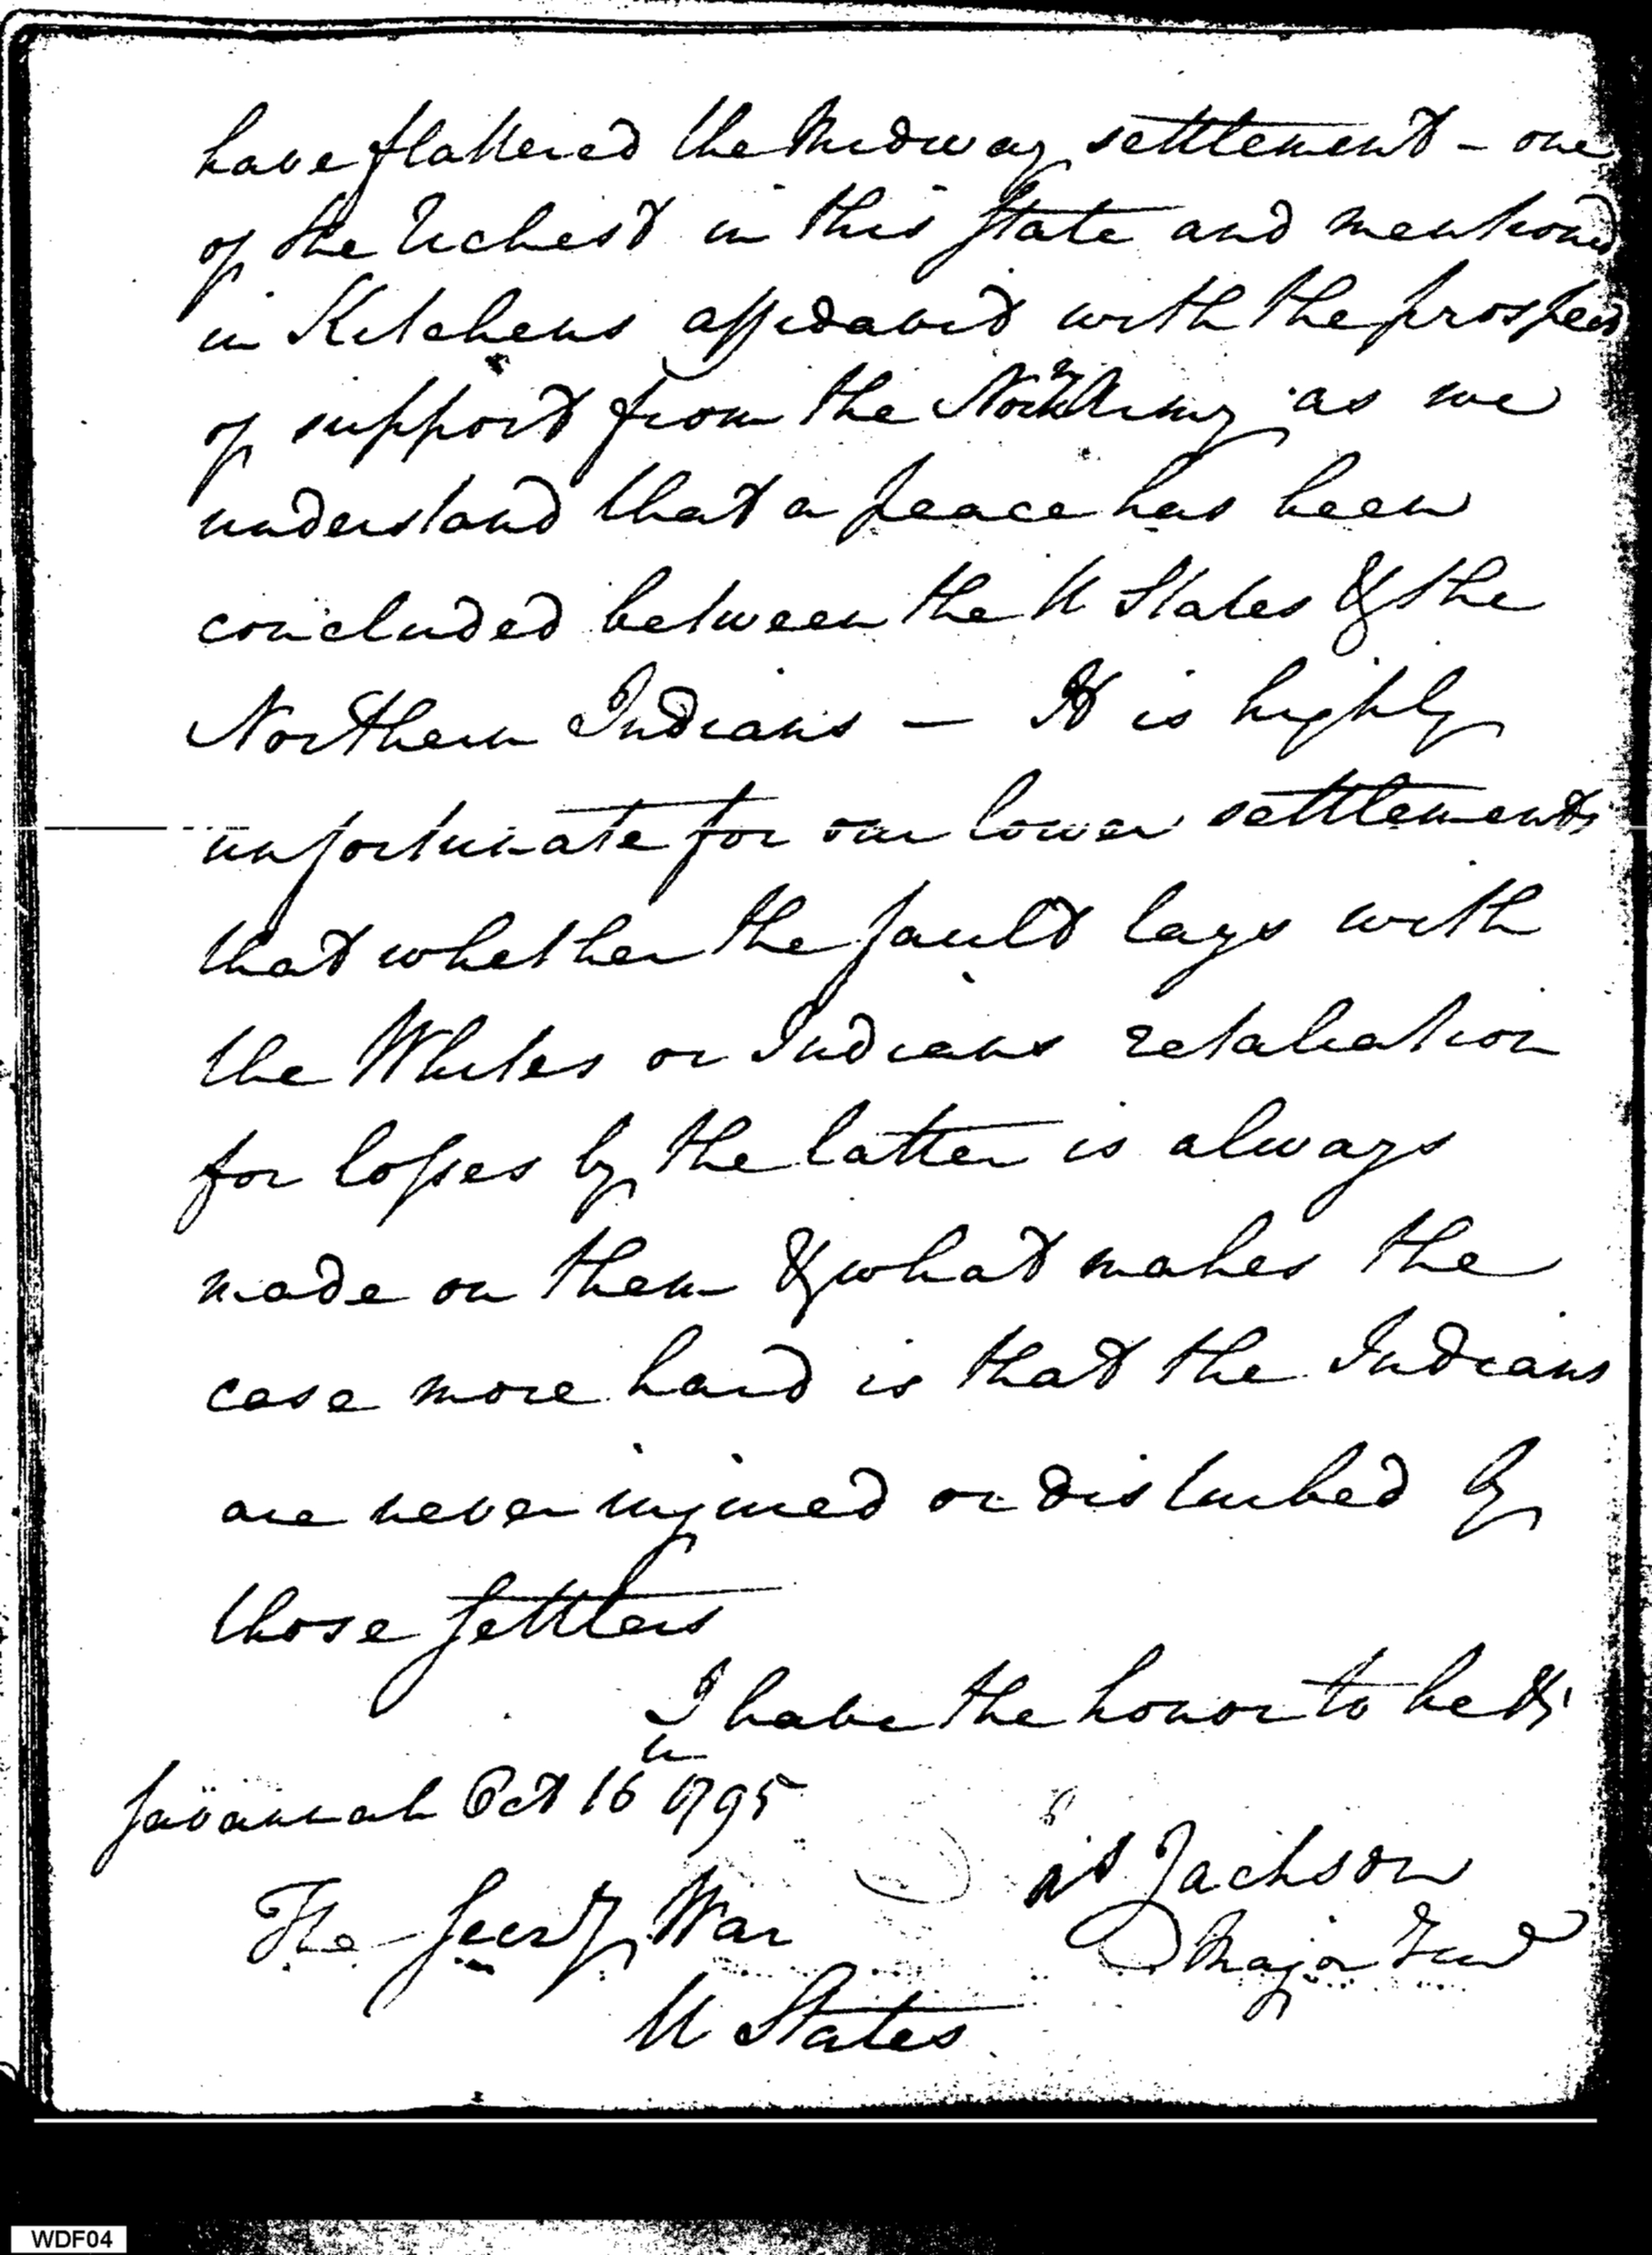 have flattered the Midway settlement - one
of the richest in this State and mentioned
in Kitchens affidavit with the prospect
of support from the Northn Army as we
understand that a peace has been
concluded between the U States & the
Northern Indians — It is highly
unfortunate for our lower settlements
that whether the fault lays with
the Whites or Indians retaliation
for losses by the latter is always
made on them & what makes the
case more hard is that the Indians
are never injured or disturbed by
those settlers
I have the honor to be &c
Savannah Oct 16th 1795
Jackson
The Secrty War
Major Genl
U States
WDF04